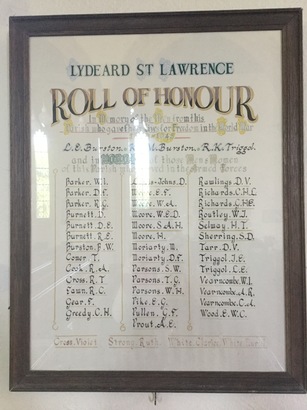 LYDEARD ST LAWRENCE
ROLL OF HONOUR
In Memory of the Men from this
Parish who gave their lives for Freedom in the World War
L.E. Burston. R. M. Burston. R.K. Triggol.
and in of those Men Women
of this Parish who served in the Armed Forces
Parker. W.I.
Parker. D.F.
Parker. R.G.
Burnett. D.
Burnett. D.E.
Burnett. R.E.
Burston. F.W.
Coner. T.
Cook. R.A.
Cross. R.T
Fawn. R.C.
Gear. F.
Greedy. C.H.
Johns. D.
Moore. E.F.
Moore. W.A.
Moore. W.E.D.
Moore. S.A.H.
Moore. H.
Moriarty. M.
Moriarty. D.F.
Parsons. S.W.
Parsons. T.G.
Parsons. W.H.
Pike. E.G.
Pullen. G.F.
Prout. A.E.
Rawlings. D.V.
Richards. C.H.L.
Richards. G.H.E.
Routley. W.J.
Selway. H.T.
Sherring. S.D.
Tarr. D.V.
Triggol. J.E.
Triggol. L.E.
Vearncombe. W.J.
Vearncombe. A.R.
Vearncombe. C.A.
Wood. E.W.C.
Cross. Violet. Strong. Ruth. White. White.